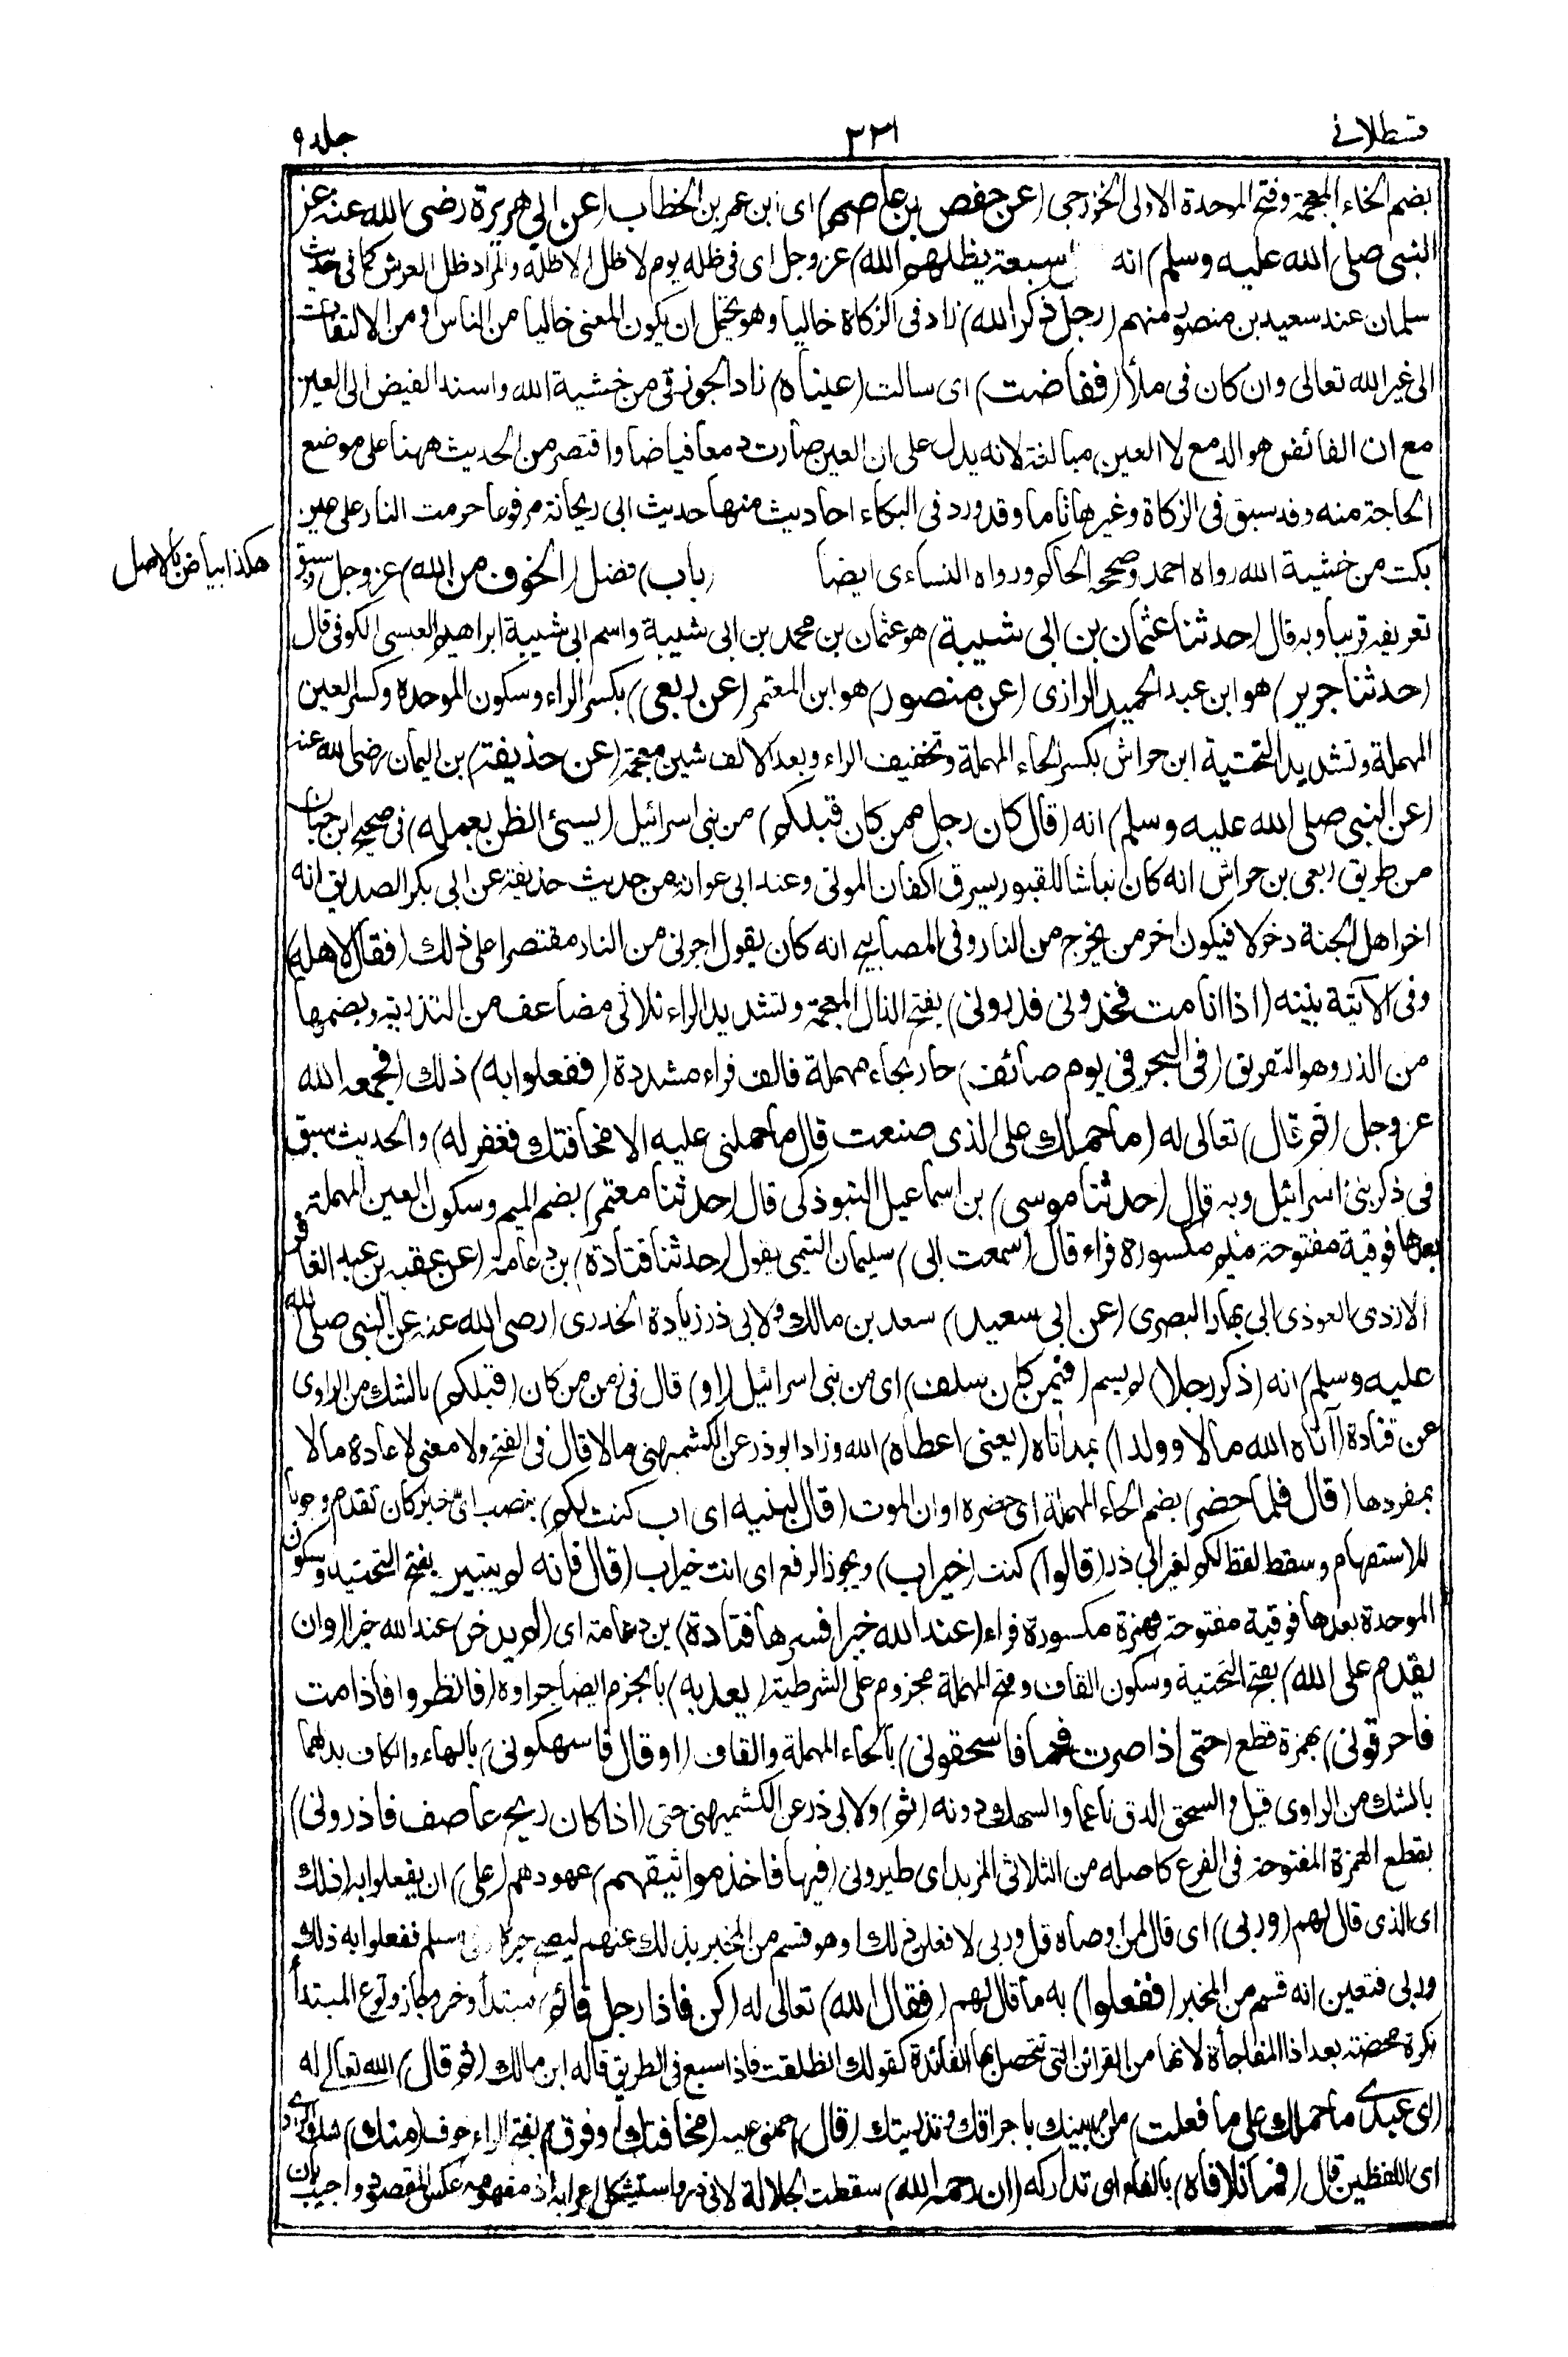 قسطلانى ٣٣١ جلد ٩
بضم الخاء المعجمة وفتح الموحدة الاولى الخزرجى (عن حفص بن عاصم) اى ابن عمر بن الخطاب (عن ابي هريرة رضى الله عنه عن
النبى صلى الله عليه وسلم) انه (سبعة يظلهم الله) عز وجل اى فى ظله يوم لا ظل الا ظله والمراد ظل العرش كما فى حديث
سلمان عند سعيد بن منصور منهم (رجل ذكر الله) زاد فى الزكاة خاليا وهو يحتمل ان يكون المعنى خاليا من الناس او من الالتفات
الى غير الله تعالى وان كان فى ملأ (ففاضت) اى سالت (عيناه) زاد الجوزقى من خشية الله واسند الفيض الى العين
مع ان الفائض هو الدمع لا العين مبالغة لانه يدل على ان العين صارت دمعا فياضا واقتصر من الحديث ههنا على موضع
الحاجة منه وقد سبق فى الزكاة وغيرها تاما وقد ورد فى البكاء احاديث منها حديث ابى ريحانة مرفوعا حرمت النار على عين
بكت من خشية الله رواه احمد وصححه الحاكم ورواه النساءى ايضا (باب) فضل (الخوف من الله) عز وجل وسبق
هكذا بياض بالاصل
تعريفه قريبا وبه قال (حدثنا عثمان بن ابى شيبة) هو عثمان بن محمد بن ابى شيبة واسم ابى شيبة ابراهيم العبسى الكوفى قال
(حدثنا جرير) هو ابن عبد الحميد الرازى (عن منصور) هو ابن المعتمر (عن ربعى) بكسر الراء وسكون الموحدة وكسر العين
المهملة وتشديد التحتية ابن حراش بكسر الحاء المهملة وتخفيف الراء وبعد الالف شين معجمة (عن حذيفة) بن اليمان رضى الله عنه
(عن النبى صلى الله عليه وسلم) انه (قال كان رجل ممن كان قبلكم) من بنى اسرائيل (يسئ الظن بعمله) فى صحيح ابن حبان
من طريق ربعى بن حراش انه كان نباشا للقبور يسرق اكفان الموتى وعند ابى عوانة من حديث حذيفة عن ابى بكر الصديق انه
اخر اهل الجنة دخولا فيكون اخر من يخرج من النار وفى المصابيح انه كان يقول اجرنى من النار مقتصرا على ذلك (فقال لاهله)
وفى الآتية بنيه (اذا انا مت فخذونى فذرونى) بفتح الذال المعجمة وتشديد الراء ثلاثى مضاعف من التذرية وبضمها
من الذر وهو التفريق (فى البحر فى يوم صائف) حار بحاء مهملة فالف فراء مشددة (ففعلوا به) ذلك (فجمعه الله
عز وجل (ثم قال) تعالى له (ما حملك على الذى صنعت قال ما حملنى عليه الا مخافتك فغفر له) والحديث سبق
فى ذكر بنى اسرائيل وبه قال (حدثنا موسى) بن اسماعيل التبوذكى قال (حدثنا معتمر) بضم الميم وسكون العين المهملة
بعدها فوقية مفتوحة فميم مكسورة فراء قال (سمعت ابى) سليمان التيمى يقول (حدثنا قتادة) بن دعامة (عن عقبة بن عبد الغافر
الازدى العوذى ابى نهار البصرى (عن ابي سعيد) سعد بن مالك ولابى ذر زيادة الخدرى (رضى الله عنه عن النبى صلى الله
عليه وسلم) انه (ذكر رجلا) لم يسم (فيمن كان سلف) اى من بنى اسرائيل (او) قال فى زمن من كان (قبلكم) بالشك من الراوى
عن قتادة (آتاه الله مالا وولدا) بمد اتاه (يعنى اعطاه) الله وزاد ابوذر عن الكشميهنى مالا قال فى الفتح ولا معنى لاعادة مالا
بمفردها (قال فلما حضر) بضم الحاء المهملة اى حضره اوان الموت (قال لبنيه اى اب كنت لكم) بنصب اى خبر كان تقدم وجوبا
للاستفهام وسقط لفظ لكم لغير ابى ذر (قالوا) كنت (خير اب) ويجوز الرفع اى انت خير اب (قال فانه لم يبتئر) بفتح التحتية وسكون
الموحدة بعدها فوقية مفتوحة فهمزة مكسورة فراء (عند الله خيرا فسرها قتادة) بن دعامة اى (لم يدخر) عند الله خيرا (وان
يقدم على الله) بفتح التحتية وسكون القاف وفتح المهملة مجزوم على الشرطية (يعذبه) بالجزم ايضا جزاءه (فانظروا فاذا مت
فاحرقونى) بهمزة قطع (حتى اذا صرت فحما فاسحقونى) بالحاء المهملة والقاف (او قال فاسهكونى) بالهاء والكاف بدلهما
بالشك من الراوى قيل والسحق الدق ناعما والسهك دونه (ثم) ولابى ذر عن الكشميهنى حتى (اذا كان ريح عاصف فاذرونى)
بقطع الهمزة المفتوحة فى الفرع كاصله من الثلاثى المزيد اى طيرونى (فيها فاخذ مواثيقهم) عهودهم (على) ان يفعلوا به (ذلك
اى الذى قال لهم (وربى) اى قال لمن اوصاه قل وربى لافعلن ذلك او هو قسم من المخبر بذلك عنهم ليصح خبره وسلم ففعلوا به ذلك
وربى فتعين انه قسم من المخبر (ففعلوا) به ما قال لهم (فقال الله) تعالى له (كن فاذا رجل قائم) مبتدأ وخبر وجاز وقوع المبتدأ
نكرة محضة بعد اذا المفاجأة لانها من القرائن التى تحصل بها الفائدة كقولك انطلقت فاذا سبع فى الطريق قاله ابن مالك (ثم قال) الله تعالى له
(اى عبدى ما حملك على ما فعلت) من امر بنيك باحراقك وتذريتك (قال) حملنى عليه (مخافتك او فرق) بفتح الراء خوف (منك) شك الراوى
اى اللفظين قال (فما تلافاه) بالفاء اى تداركه (ان رحمه الله) سقطت الجلالة لابى ذر واستشكل اعرابه اذ مفهومه عكس المقصود واجيب بان